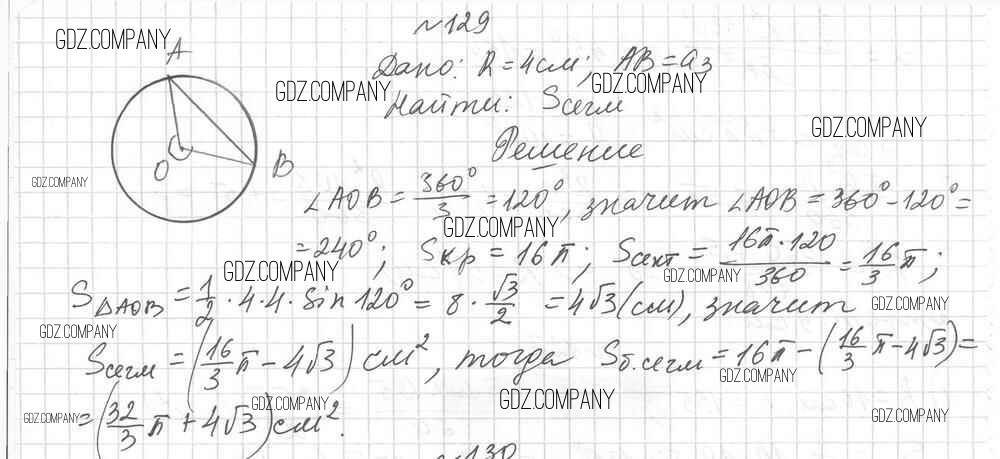 №129
GDZ.COMPANY
A
Дано: R = 4см; AB = a₃
GDZ.COMPANY GDZ.COMPANY
Найти: Sсегм
GDZ.COMPANY
Решение
O B
GDZ.COMPANY
∠AOB = 360°/3 = 120°, значит ∠AOB = 360° - 120° =
GDZ.COMPANY
= 240°; Sкр = 16π; Sсект = 16π·120/360 = 16/3 π;
GDZ.COMPANY GDZ.COMPANY
S△AOB = 1/2 · 4 · 4 · sin 120° = 8 · √3/2 = 4√3 (см), значит
GDZ.COMPANY
GDZ.COMPANY
Sсегм = (16/3 π - 4√3) см², тогда Sб.сегм = 16π - (16/3 π - 4√3) =
GDZ.COMPANY
GDZ.COMPANY GDZ.COMPANY
= (32/3 π + 4√3) см².
GDZ.COMPANY GDZ.COMPANY
№130